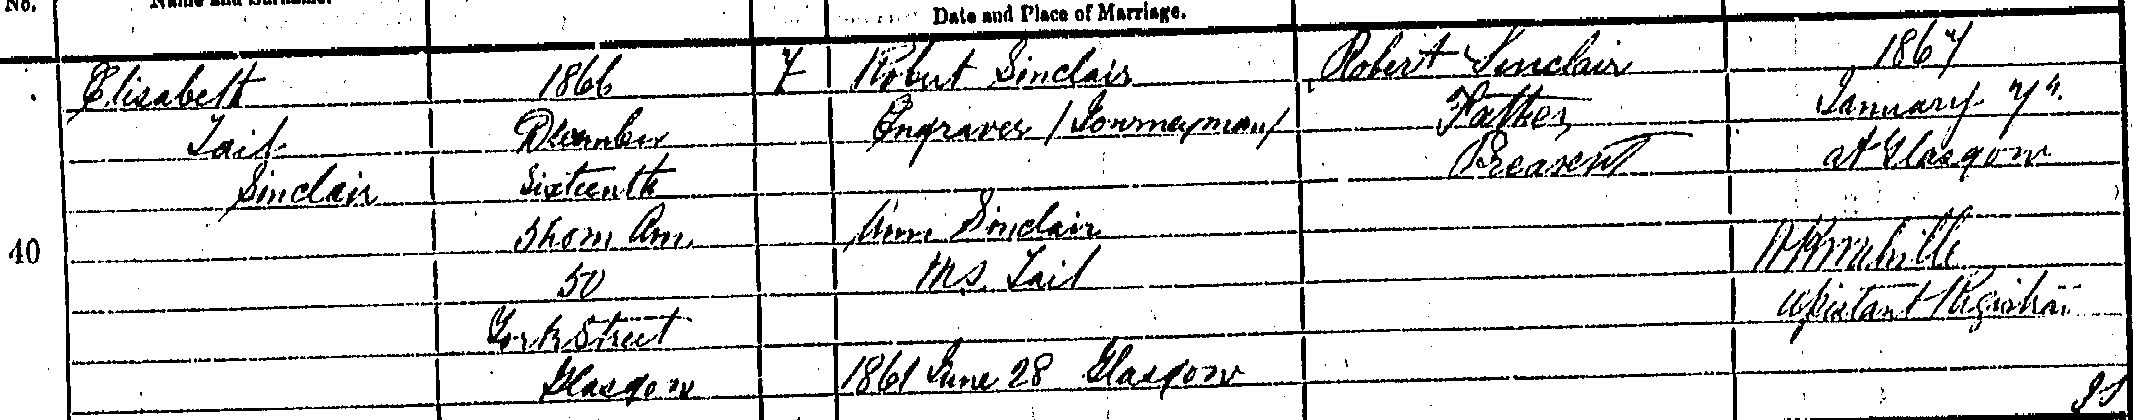 No. Name and Surname. Date and Place of Marriage.
40
Elisabeth
Tait
Sinclair
1866
December
Sixteenth
5h 0m Am.
50
York Street
Glasgow
F
Robert Sinclair
Engraver /Journeyman/
Ann Sinclair
M.S. Tait
1861 June 28 Glasgow
Robert Sinclair
Father
Present
1867
January 7th
at Glasgow
Assistant Registrar